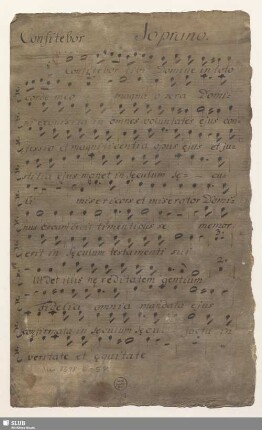 Confitebor Soprano.
Confitebor tibi Domine in toto
corde meo magna opera Domi-
exquisita in omnes voluntates ejus con
fessio et magnificentia opus ejus et ju
stitia ejus manet in seculum se-
misericors et miserator Domi
nus escam timentibus se memor
erit in seculum testamenti sui
ut det illis hereditatem gentium
omnia mandata ejus
confirmata in seculum facta in
veritate et equitate
SLUB